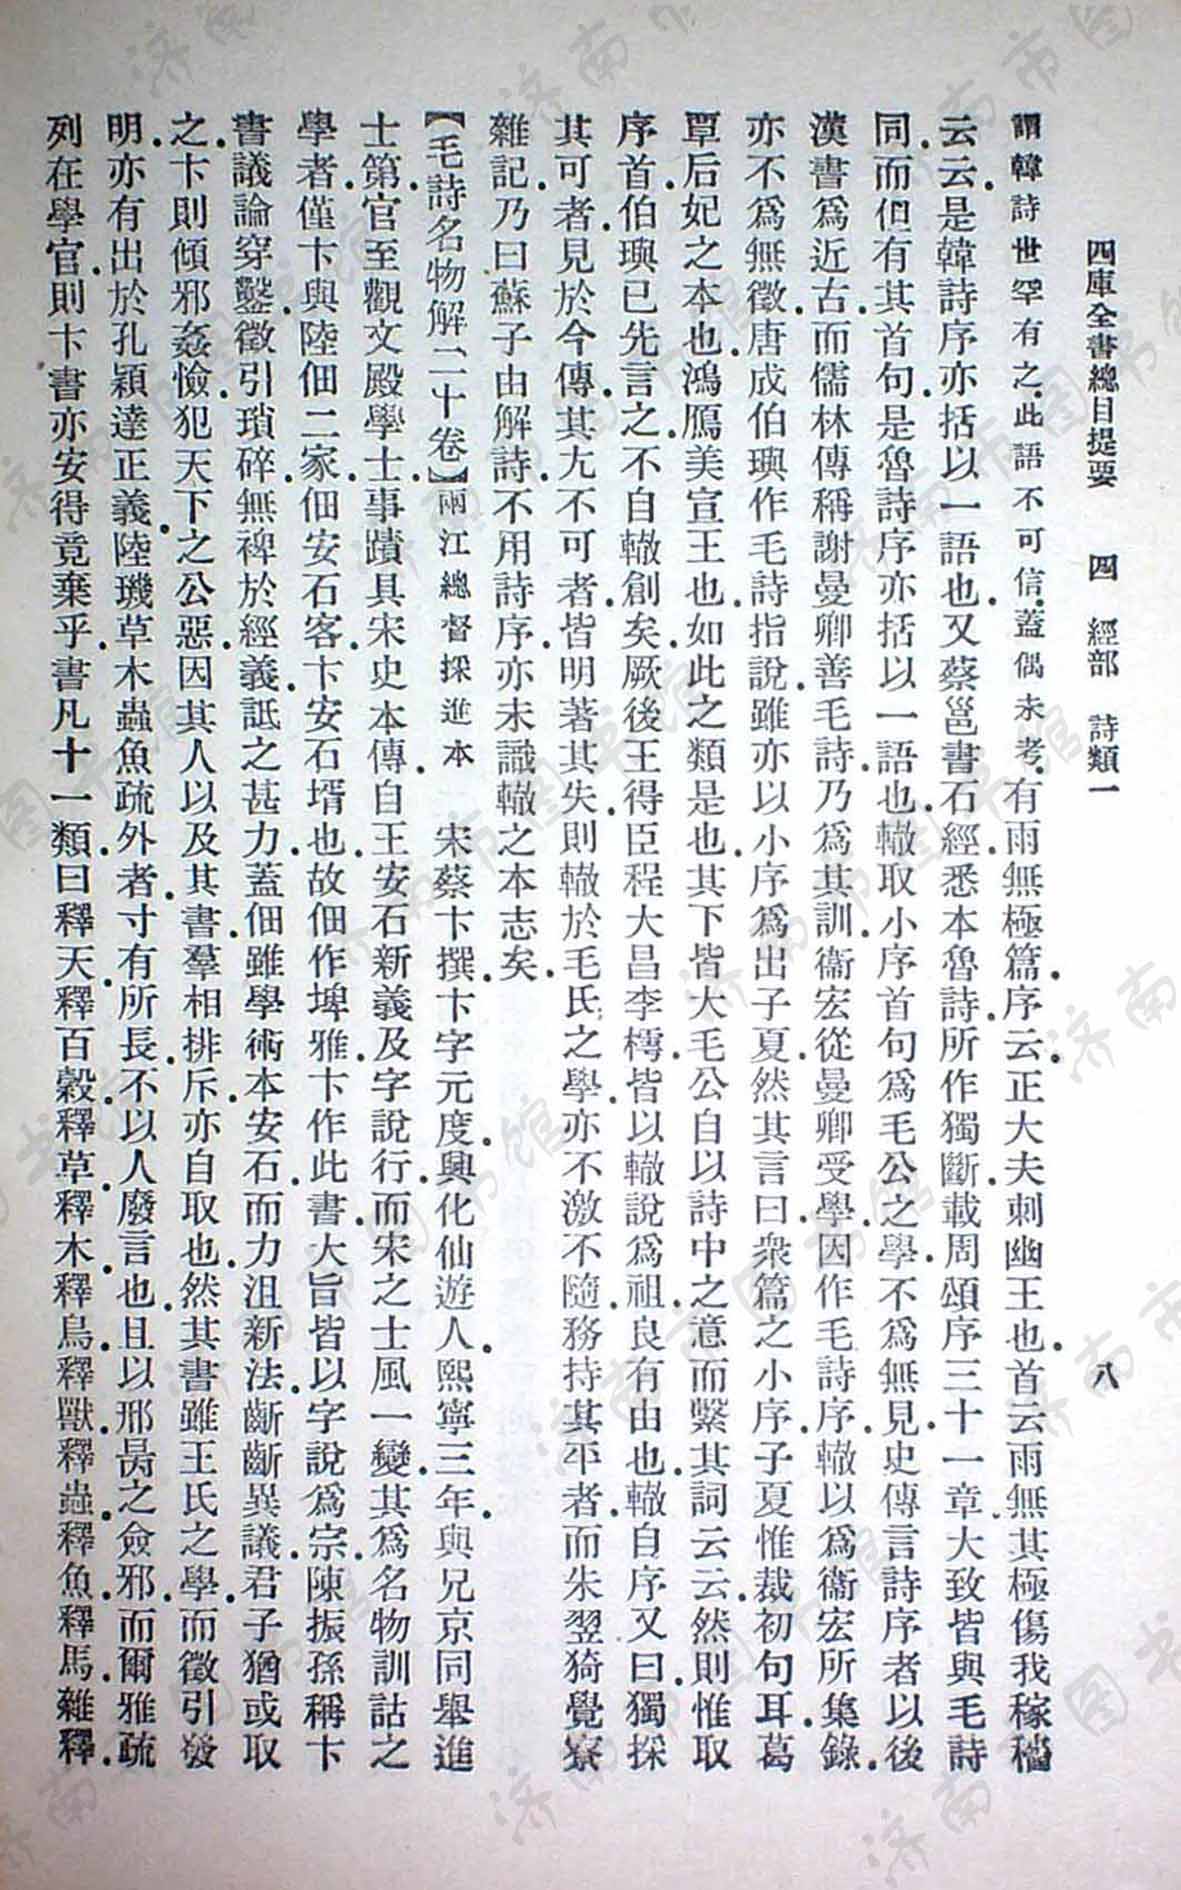 四庫全書總目提要　四　經部　詩類一　八
謂韓詩世罕有之此語不可信蓋偶未考有雨無極篇序云正大夫刺幽王也首云雨無其極傷我稼穡
云云是韓詩序亦括以一語也又蔡邕書石經悉本魯詩所作獨斷載周頌序三十一章大致皆與毛詩
同而但有其首句是魯詩序亦括以一語也轍取小序首句爲毛公之學不爲無見史傳言詩序者以後
漢書爲近古而儒林傳稱謝曼卿善毛詩乃爲其訓衞宏從曼卿受學因作毛詩序轍以爲衞宏所集錄
亦不爲無徵唐成伯璵作毛詩指說雖亦以小序爲出子夏然其言曰衆篇之小序子夏惟裁初句耳葛
覃后妃之本也鴻鴈美宣王也如此之類是也其下皆大毛公自以詩中之意而繫其詞云云然則惟取
序首伯璵已先言之不自轍創矣厥後王得臣程大昌李樗皆以轍說爲祖良有由也轍自序又曰獨採
其可者見於今傳其尤不可者皆明著其失則轍於毛氏之學亦不激不隨務持其平者而朱翌猗覺寮
雜記乃曰蘇子由解詩不用詩序亦未識轍之本志矣
【毛詩名物解二十卷】兩江總督採進本　宋蔡卞撰卞字元度興化仙遊人熙寧三年與兄京同舉進
士第官至觀文殿學士事蹟具宋史本傳自王安石新義及字說行而宋之士風一變其爲名物訓詁之
學者僅卞與陸佃二家佃安石客卞安石壻也故佃作埤雅卞作此書大旨皆以字說爲宗陳振孫稱卞
書議論穿鑿徵引瑣碎無裨於經義詆之甚力蓋佃雖學術本安石而力沮新法齗齗異議君子猶或取
之卞則傾邪姦憸犯天下之公惡因其人以及其書羣相排斥亦自取也然其書雖王氏之學而徵引發
明亦有出於孔穎達正義陸璣草木蟲魚疏外者寸有所長不以人廢言也且以邢昺之僉邪而爾雅疏
列在學官則卞書亦安得竟棄乎書凡十一類曰釋天釋百穀釋草釋木釋鳥釋獸釋蟲釋魚釋馬雜釋